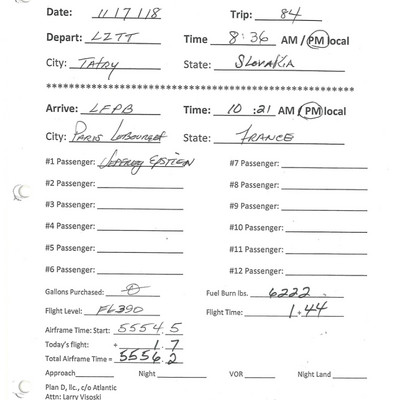 Date: 11/7/18 Trip: 84
Depart: LZTT Time 8:36 AM / PM local
City: Tatry State: Slovakia
********************************************
Arrive: LFPB Time: 10:21 AM / PM local
City: Paris LeBourget State: France
#1 Passenger: Jeffrey Epstien #7 Passenger:
#2 Passenger: #8 Passenger:
#3 Passenger: #9 Passenger:
#4 Passenger: #10 Passenger:
#5 Passenger: #11 Passenger:
#6 Passenger: #12 Passenger:
Gallons Purchased: 0 Fuel Burn lbs. 6222
Flight Level: FL390 Flight Time: 1.44
Airframe Time: Start: 5554.5
Today's flight: + 1.7
Total Airframe Time = 5556.2
Approach Night VOR Night Land
Plan D, llc., c/o Atlantic
Attn: Larry Visoski